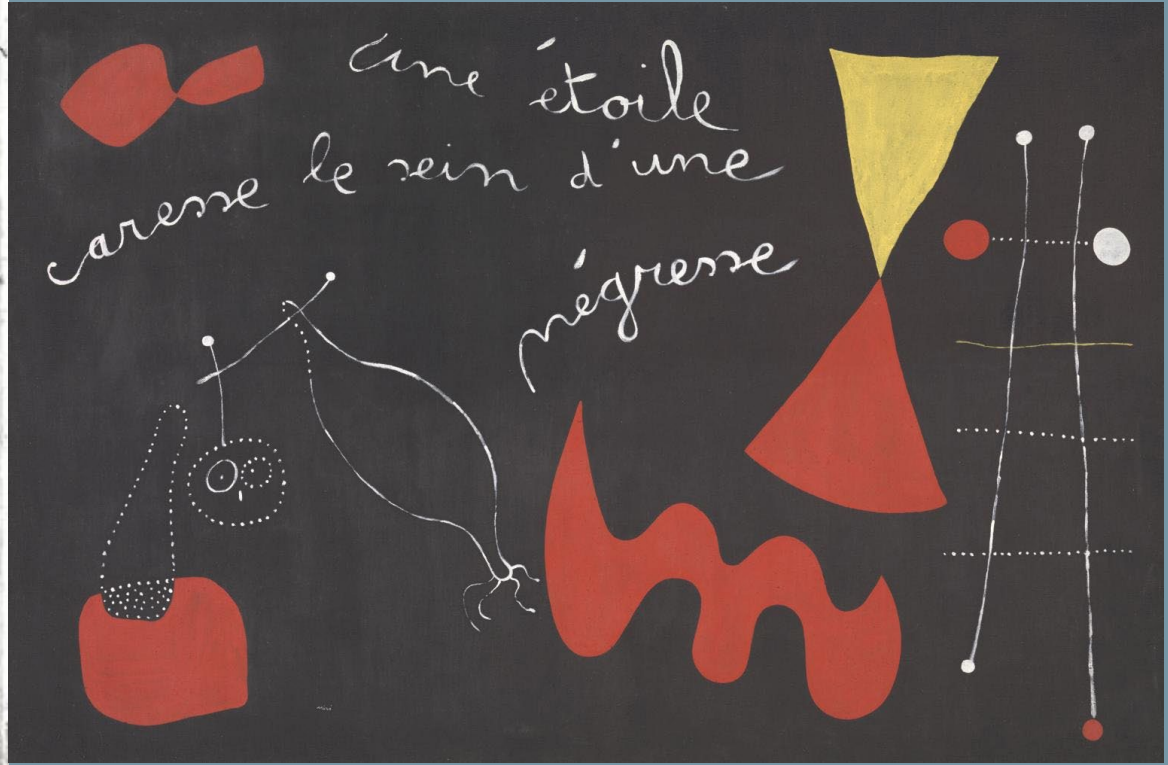 une étoile
caresse le sein d'une
négresse
miró